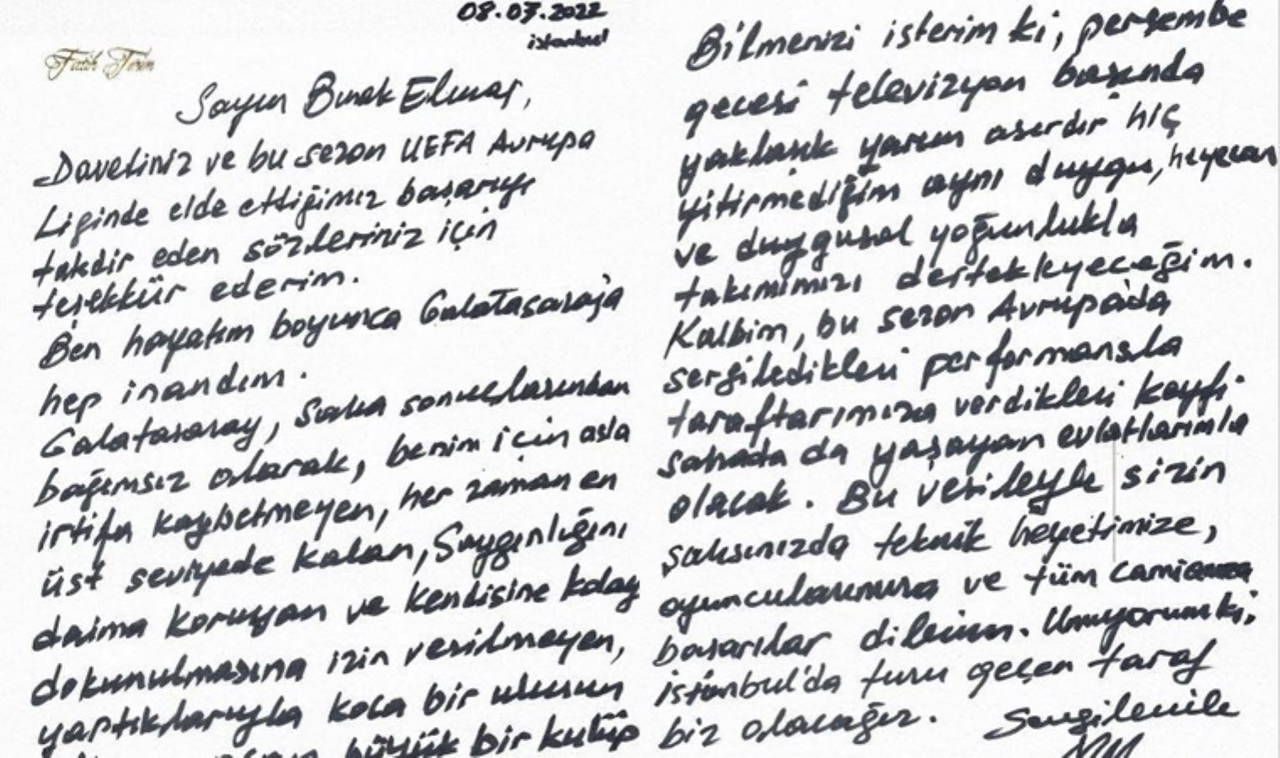 08.03.2022
istanbul
Fatih Terim
Sayın Burak Elmas,
Davetiniz ve bu sezon UEFA Avrupa
Liginde elde ettiğimiz başarıyı
takdir eden sözleriniz için
teşekkür ederim.
Ben hayatım boyunca Galatasaray'a
hep inandım.
Galatasaray, saha sonuçlarından
bağımsız olarak, benim için asla
irtifa kaybetmeyen, her zaman en
üst seviyede kalan, Saygınlığını
daima koruyan ve kendisine kolay
dokunulmasına izin verilmeyen,
yaptıklarıyla koca bir ulusun
büyük bir kulüp
Bilmenizi isterim ki, perşembe
gecesi televizyon başında
yaklaşık yarım asırdır hiç
yitirmediğim aynı duygu, heyecan
ve duygusal yoğunlukla
takımımızı destekleyeceğim.
Kalbim, bu sezon Avrupa'da
sergiledikleri performansla
taraftarımıza verdikleri keyfi
sahada da yaşayan evlatlarımla
olacak. Bu vesileyle sizin
şahsınızda teknik heyetimize,
oyuncularımıza ve tüm camiamıza
başarılar dilerim. Umuyorum ki,
istanbul'da turu geçen taraf
biz olacağız.
Sevgilerimle